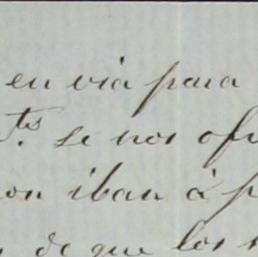 en via para
ts. se nos ofr
on iban á p
de que los